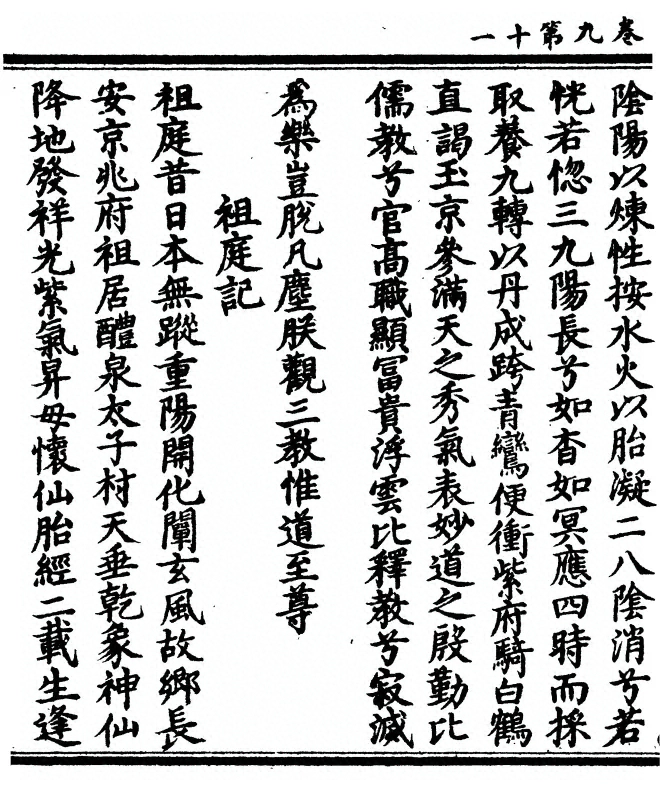 卷九第十一
陰陽以煉性按水火以胎凝二八陰消兮若
恍若惚三九陽長兮如杳如冥應四時而採
取養九轉以丹成跨青鸞便衝紫府騎白鶴
直謁玉京參滿天之秀氣表妙道之殷勤比
儒教兮官高職顯冨貴浮雲比釋教兮寂滅
爲樂豈脫凡塵朕觀三教惟道至尊
祖庭記
祖庭昔日本無蹤重陽開化闡玄風故鄉長
安京兆府祖居醴泉太子村天垂乾象神仙
降地發祥光紫氣昇毋懷仙胎經二載生逢